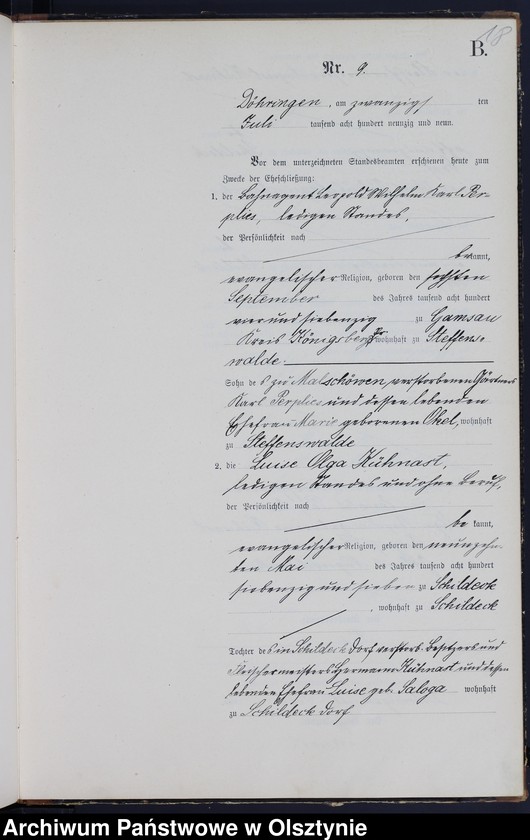 18
B.
Nr. 9.
Döhringen, am zwanzigsten ten
Juli tausend acht hundert neunzig und neun.
Vor dem unterzeichneten Standesbeamten erschienen heute zum
Zwecke der Eheschließung:
1. der Leopold Wilhelm Karl Per-
plies, ledigen Standes,
der Persönlichkeit nach
bekannt,
evangelischer Religion, geboren den sechsten
September des Jahres tausend acht hundert
vierundsiebenzig zu Gamsau
Kreis Königsberg Pr wohnhaft zu Steffens-
walde.
Sohn des zu Malschöwen verstorbenen Gärtners
Karl Perplies und dessen lebenden
Ehefrau Marie geborenen Okel, wohnhaft
zu Steffenswalde
2. die Luise Olga Kühnast,
ledigen Standes und ohne Beruf,
der Persönlichkeit nach
be kannt,
evangelischer Religion, geboren den neunzehn
ten Mai des Jahres tausend acht hundert
siebenzig und sieben zu Schildeck
, wohnhaft zu Schildeck
Tochter des in Schildeck Dorf verstorb. Besitzers und
Fleischermeisters Hermann Kühnast und dessen
lebenden Ehefrau Luise geb. Saloga wohnhaft
zu Schildeck Dorf
Archiwum Państwowe w Olsztynie